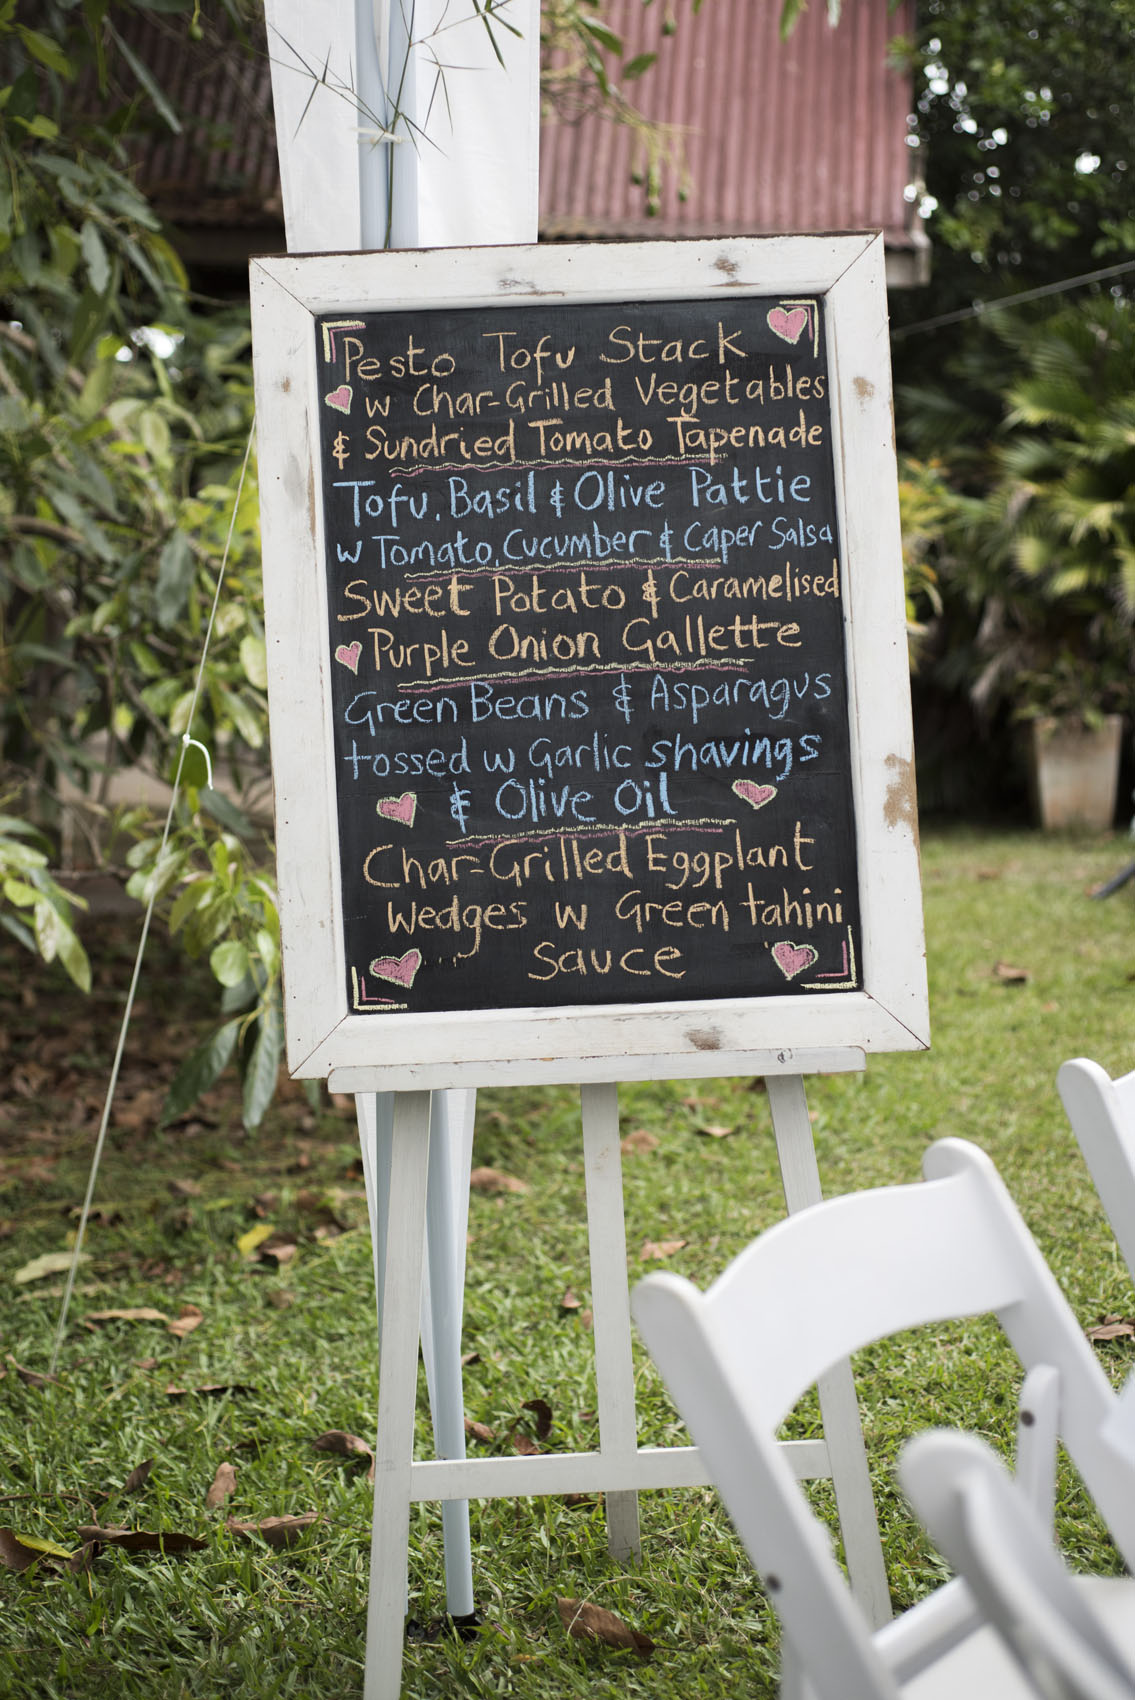 Pesto Tofu Stack
w Char-Grilled Vegetables
& Sundried Tomato Tapenade
Tofu, Basil & Olive Pattie
w Tomato, Cucumber & Caper Salsa
Sweet Potato & Caramelised
Purple Onion Gallette
Green Beans & Asparagus
tossed w Garlic shavings
& Olive Oil
Char-Grilled Eggplant
Wedges w Green tahini
Sauce